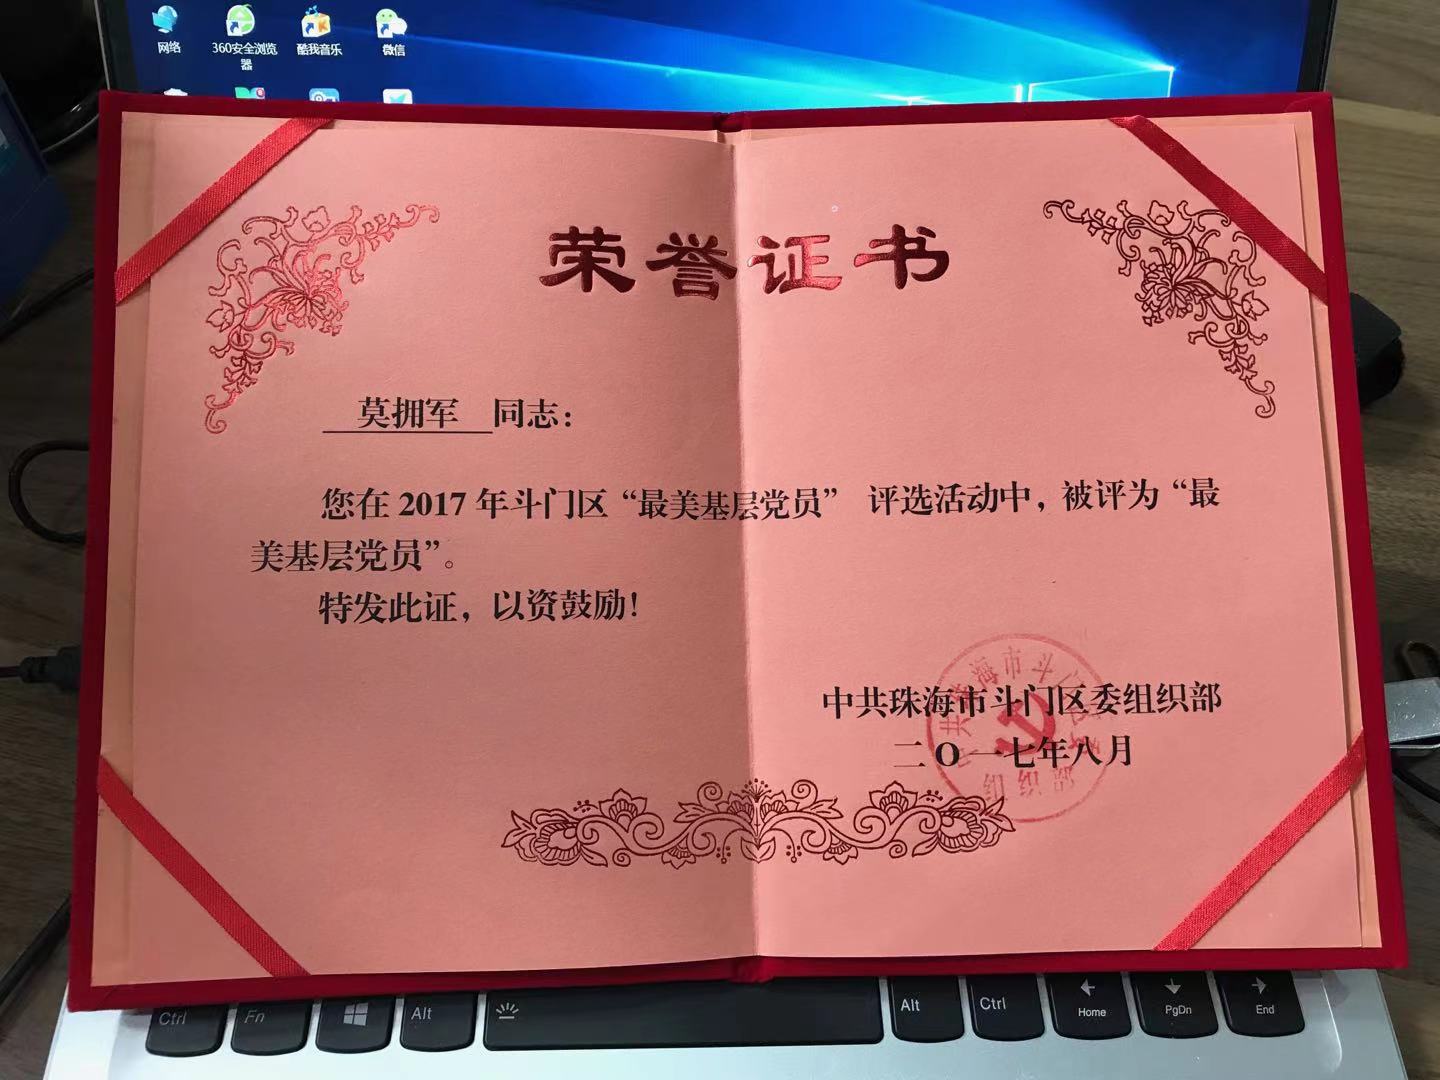 网络
360安全浏览
器
酷我音乐
微信
荣誉证书
莫拥军 同志：
您在 2017 年斗门区“最美基层党员” 评选活动中，被评为“最
美基层党员”。
特发此证，以资鼓励！
中共珠海市斗门区委组织部
二〇一七年八月
中共珠海市斗门区委
组织部
Ctrl
Fn
Alt
Alt
Ctrl
Home
PgDn
End